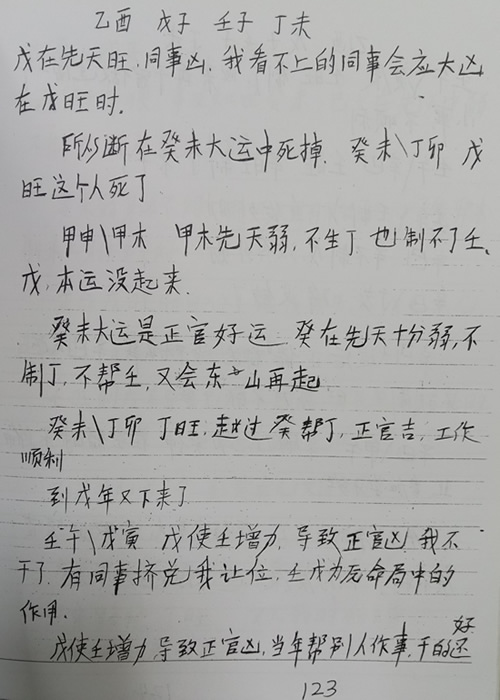 乙酉 戊子 壬子 丁未
戊在先天旺,同事凶,我看不上的同事会应大凶
在戊旺时.
所以断在癸未大运中死掉. 癸未\丁卯 戊
旺这个人死了
甲申\甲木 甲木先天弱,不生丁也制不了壬、
戊,本运没起来.
癸未大运是正官好运 癸在先天十分弱,不
制丁,不帮壬,又会东山再起
癸未\丁卯 丁旺,越过癸帮丁,正官吉,工作
顺利
到戊年又下来了
壬午\戊寅 戊使壬增力,导致正官凶,我不
干了.有同事挤兑我让位,壬成为原命局中的
作用.
戊使壬增力,导致正官凶,当年帮别人作事,干的还
好
123